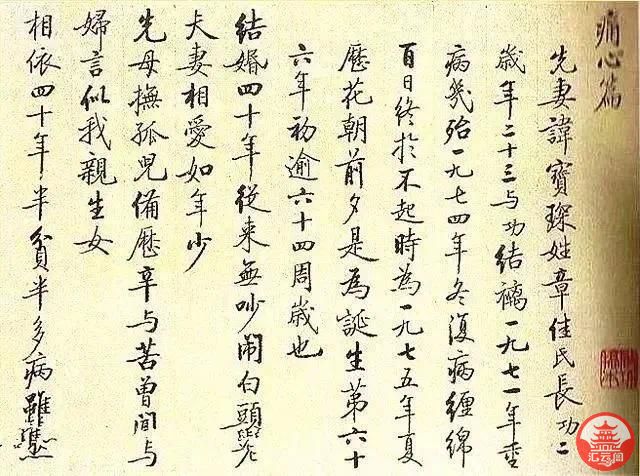 痛心篇
先妻諱寶琛姓章佳氏長功二
歲年二十三与功結褵一九七一年重
病幾殆一九七四年冬復病纏綿
百日終於不起時為一九七五年夏
歷花朝前夕是為誕生第六十
六年初逾六十四周歲也
結婚四十年從来無吵鬧白頭老
夫妻相愛如年少
先母撫孤兒備歷辛与苦曾聞与
婦言似我親生女
相依四十年半貧半多病雖然
汇云阁